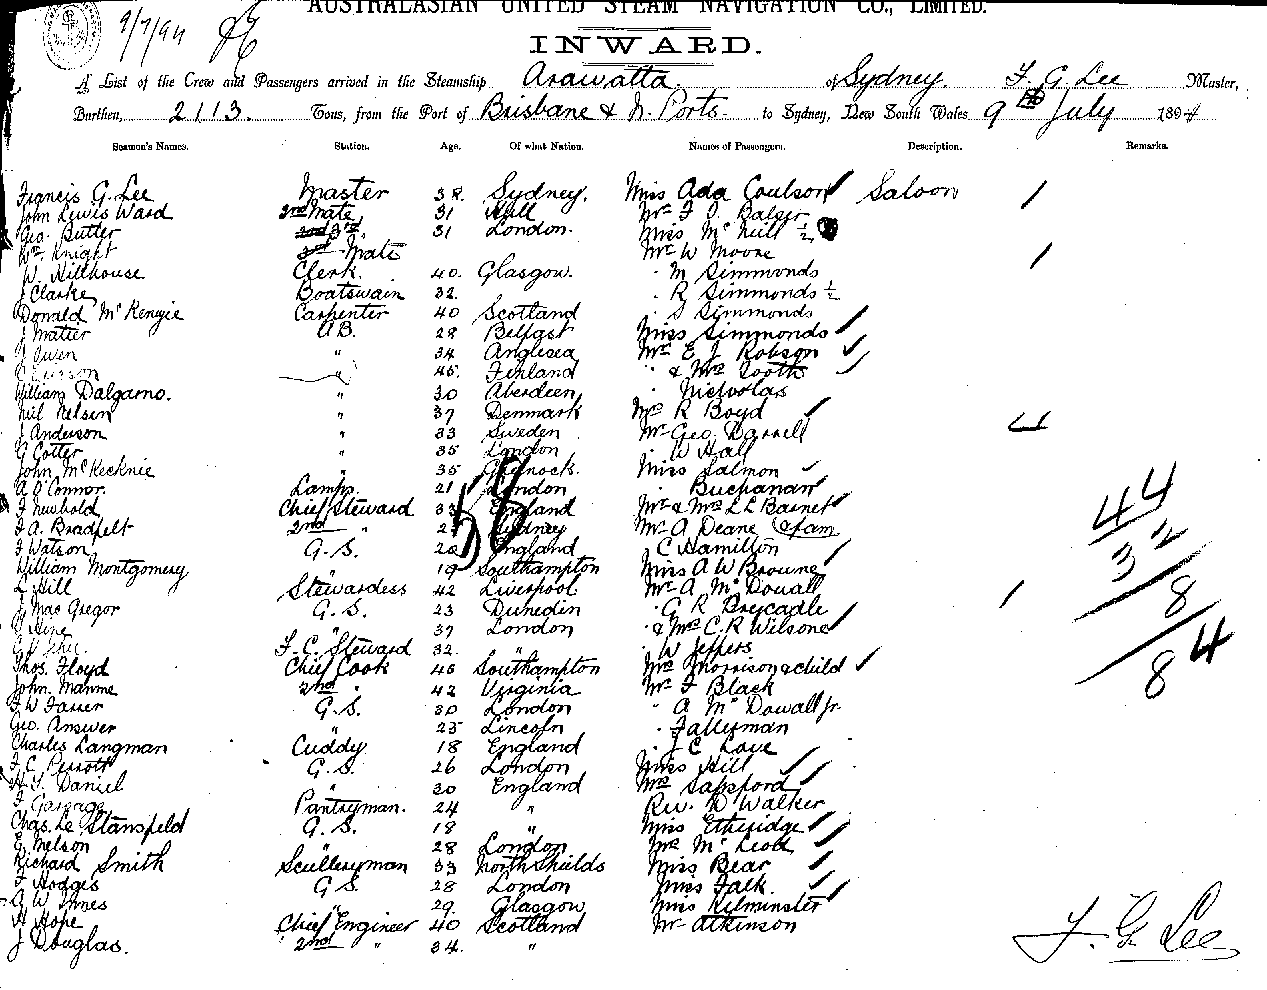 AUSTRALASIAN UNITED STEAM NAVIGATION CO., LIMITED.
9/7/94
INWARD.
A List of the Crew and Passengers arrived in the Steamship Arawatta of Sydney. F. G. Lee Master,
Burthen, 2113. Tons, from the Port of Brisbane & N. Ports to Sydney, New South Wales 9th July 1894
Seamen's Names. Station. Age. Of what Nation. Names of Passengers. Description. Remarks.
Francis G. Lee Master 38. Sydney. Miss Ada Coulson Saloon
John Lewis Ward 2nd Mate 31 Hull Mr F. O. Balser
Geo. Butler 31 London. Miss McNeill 1/2
Wm Knight 3rd Mate Mr W Moore
W. Hillhouse Clerk. 40. Glasgow. " M Simmonds
J Clarke Boatswain 32. " R Simmonds 1/2
Donald McKenzie Carpenter 40 Scotland " S Simmonds
J Mattier AB. 28 Belfast Miss Simmonds
J Owen " 34 Anglesea Mr E J Robson
" 45. Finland " & Mrs Tooth
William Dalgarno. " 30 Aberdeen " Nicholas
Neil Nelsen " 37 Denmark Mrs R Boyd
J Anderson " 33 Sweden Mr Geo. Darrell
G Cotter " 35 London " W Hall
John McKecknie " 35 Greenock. Miss Salmon
A O'Connor. Lamps. 21 London " Buchanan
F Newbold Chief Steward 33 England Mr & Mrs L L Barnet
F. A. Bradfelt 2nd " 27 Sydney Mr A Deane & fam
F Watson G. S. 20 England " C Hamilton
William Montgomery " 19 Southampton Miss A W Browne
L Hill Stewardess 42 Liverpool Mr A McDowall
J MacGregor G. S. 23 Dunedin " G R Dreycadle
Hine " 37 London " & Mrs C. R Wilsone
F. C. Steward 32. " " W Jeffers
Thos. Floyd Chief Cook 45 Southampton Mrs Morrison & child
John. Manne 2nd " 42 Virginia Mr F Black
F W Fasser G. S. 30 London " A McDowall Jr.
Geo. Answer " 25 Lincoln " Falleyman
Charles Langman Cuddy 18 England " J C Love
F. C. Perrott G. S. 26 London Miss Hill
H. J. Daniel " 30 England Mrs Sapsford
F Pantryman. 24 " Rev. D Walker
Chas. Le Stansfeld G. S. 18 " Miss Etheridge
E. Nelson " 28 London Mrs McLeod
Richard Smith Sculleryman 33 North Shields Miss Bear
F Hodges G S. 28 London Miss Falk.
G W Innes " 29. Glasgow Miss Kilminster
H Hope Chief Engineer 40 Scotland Mr Atkinson
J Douglas. 2nd " 34. "
58
44
32
8
84
F. G. Lee